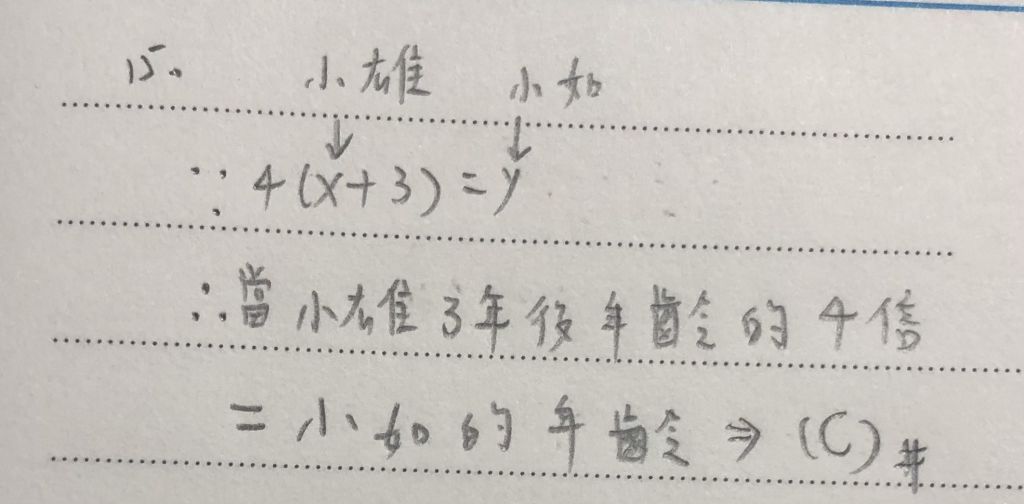 15. 小雄 小如
↓ ↓
∵ 4(x+3)=y
∴當小雄3年後年齡的4倍
=小如的年齡⇒(C)#